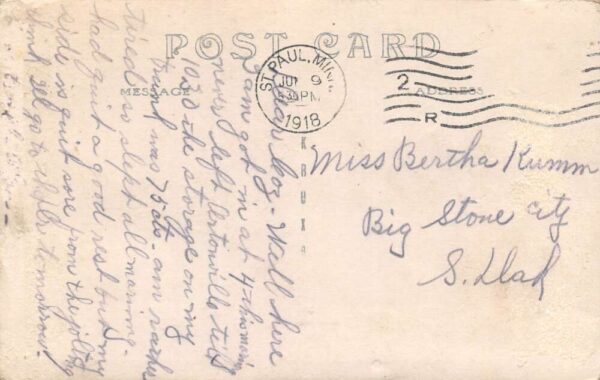 POST CARD
MESSAGE
ADDRESS
ST. PAUL, MINN.
9
30 PM
1918
2
R
KRUXO
Miss Bertha Kumm
Big Stone City
S. Dak
Dear Coz - Well here
I am got in at 4 this morn
never left Ortonville till
10:30 the storage on my
trunk was 75 cts - am rather
tired so slept all morning -
had quit a good rest but my
side is quit sore from the jolting
think Ill go to tomorrow.